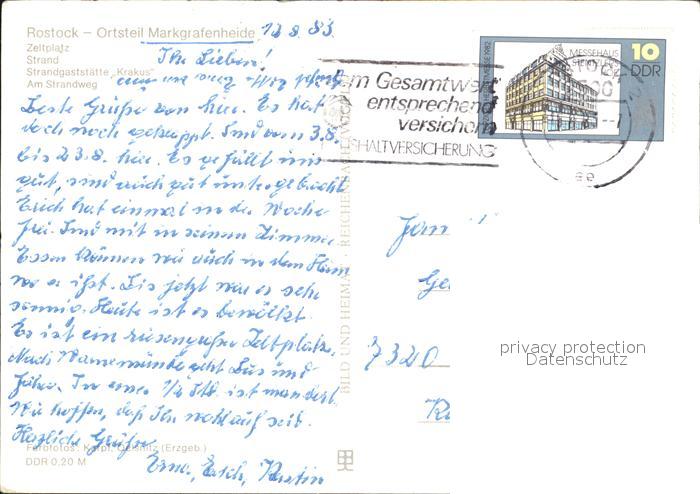 Rostock – Ortsteil Markgrafenheide
13.8.83.
Zeltplatz
Strand
Strandgaststätte „Krakus"
Am Strandweg
Ihr Lieben!
Beste Grüße von hier. Es hat
doch noch geklappt. Sind vom 3.8.
bis 23.8. hier. Es gefällt uns
gut, sind auch gut untergebracht
Erich hat einmal in der Woche
frei. Sind mit in seinem Zimmer
Essen können wir auch in dem Heim
wo er ißt. Bis jetzt war es sehr
sonnig. Heute ist es bewölkt.
Es ist ein riesengroßer Zeltplatz.
Nach Warnemünde geht Bus und
Fähre. In einer 1/2 Std. ist man dort.
Wir hoffen, daß Ihr wohlauf seid.
Herzliche Grüße
Erna, Erich, Kerstin
Farbfotos: Karpf, Geisnitz (Erzgeb.)
DDR 0,20 M
BILD UND HEIMAT REICHENBACH
em Gesamtwert
entsprechend
versichern
SHALTVERSICHERUNG
MESSEHAUS
10
DDR
1982
Fam
Ge
7320
privacy protection
Datenschutz